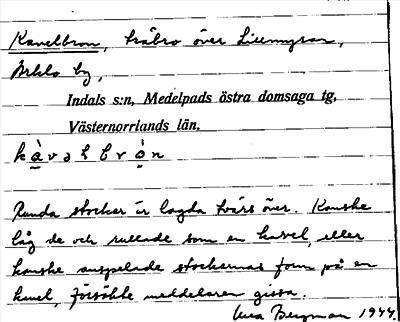 Kavelbron, träbro över Lillmyran,
by,
Indals s:n, Medelpads östra domsaga tg,
Västernorrlands län.
kàvəlbròn
Runda stockar är lagda tvärs över. Kanske
låg de och rullade som en kavel, eller
kanske anspelade stockarnas form på en
kavel, försökte meddelaren gissa.
Bergman 1944.